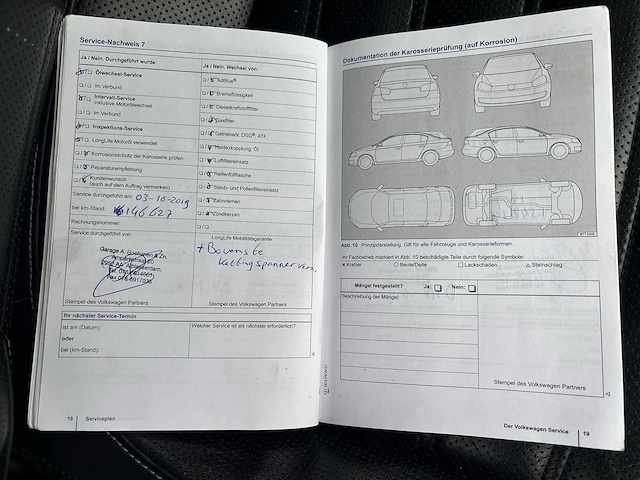 Service-Nachweis 7
Ja / Nein. Durchgeführt wurde:
Ölwechsel-Service
im Verbund
Intervall-Service
inklusive Motorölwechsel
im Verbund
Inspektions-Service
LongLife Motoröl verwendet
Korrosionsschutz der Karosserie prüfen
Reparaturempfehlung
Kundenwunsch
(auch auf dem Auftrag vermerken)
Service durchgeführt am: 03-10-2019
bei km-Stand: 146.627
Rechnungsnummer:
Service durchgeführt von:
Garage A.
Stempel des Volkswagen Partners
Ja / Nein, Wechsel von:
AdBlue®
Bremsflüssigkeit
Dieselkraftstofffilter
Gasfilter
Getriebeöl: DSG®, ATF
Haldexkupplung: Öl
Luftfiltereinsatz
Reifenfüllflasche
Staub- und Pollenfiltereinsatz
Zahnriemen
Zündkerzen
LongLife Mobilitätsgarantie
+ Bovenste
Kettingspanner verv.
Stempel des Volkswagen Partners
Ihr nächster Service-Termin
ist am (Datum):
oder
bei (km-Stand):
Welcher Service ist als nächster erforderlich?
18 Serviceplan
Dokumentation der Karosserieprüfung (auf Korrosion)
Abb. 10 Prinzipdarstellung. Gilt für alle Fahrzeuge und Karosserieformen.
Ihr Fachbetrieb markiert in Abb. 10 beschädigte Teile durch folgende Symbole:
× Kratzer ○ Beule/Delle □ Lackschaden △ Steinschlag
Mängel festgestellt? Ja: Nein:
Beschreibung der Mängel:
Stempel des Volkswagen Partners
Der Volkswagen Service 19